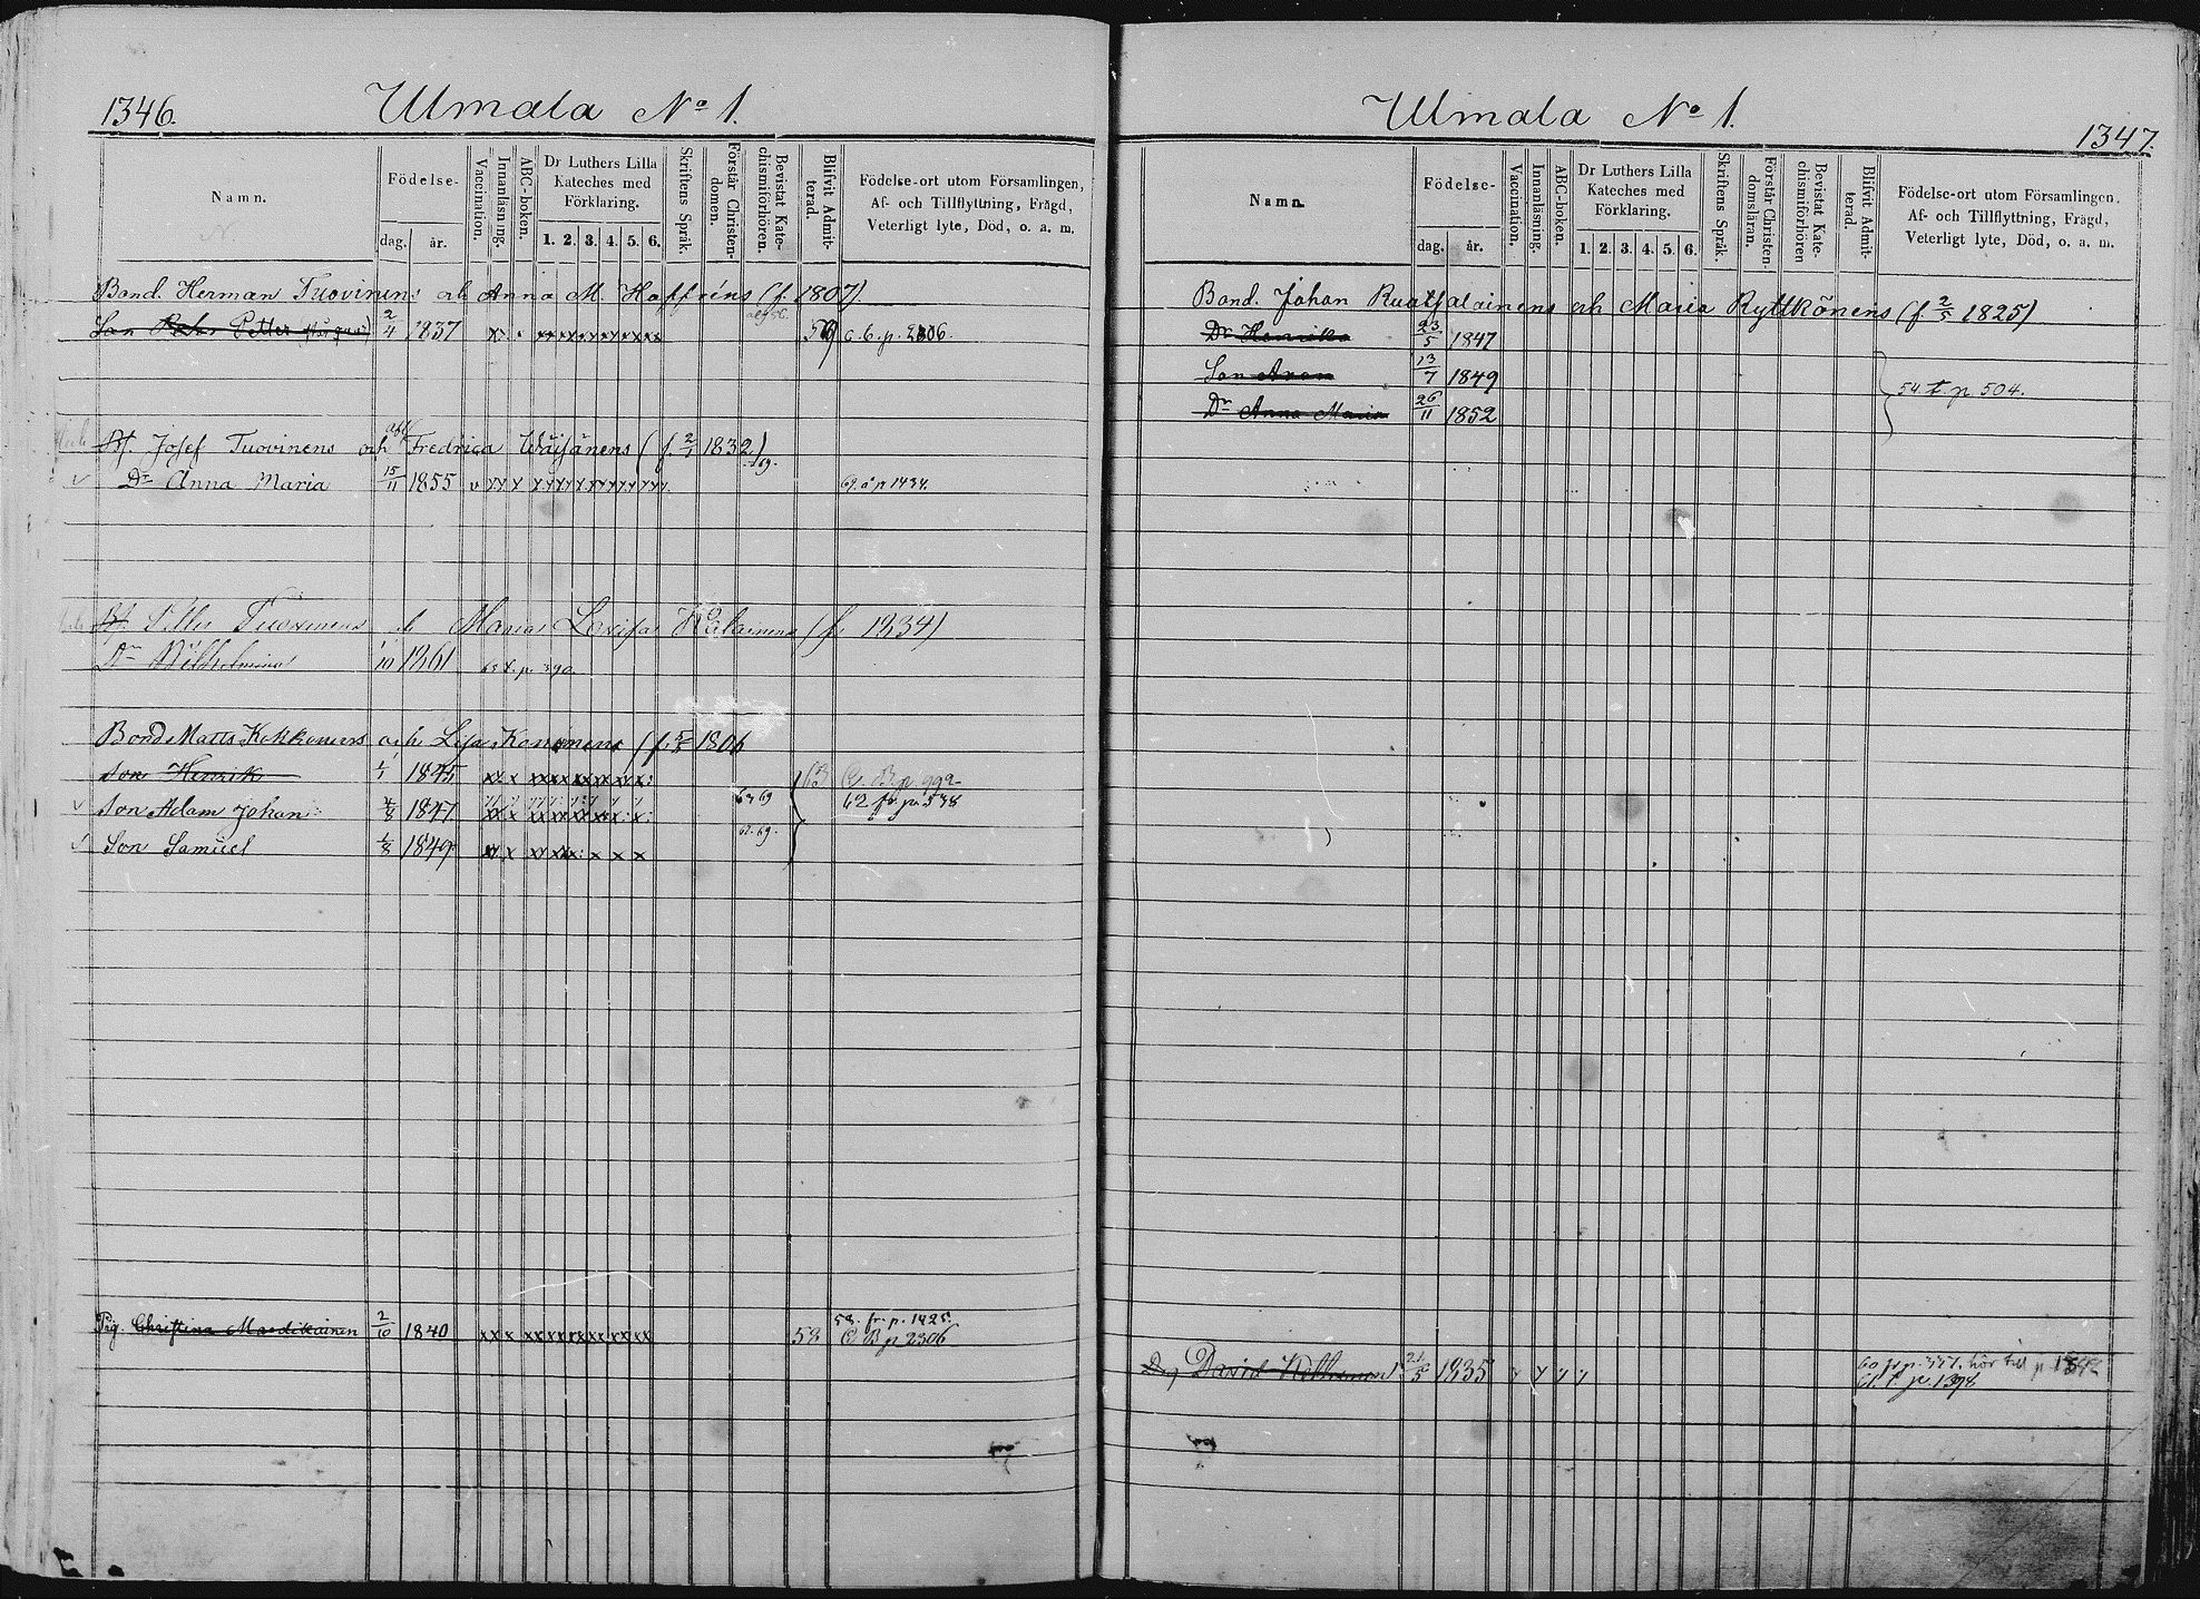 1346.
Ulmala No 1.
Namn.
Födelse-
dag. år.
Vaccination.
Innanläsning.
ABC-boken.
Dr Luthers Lilla
Kateches med
Förklaring.
1. 2. 3. 4. 5. 6.
Skriftens Språk.
Förstår Christen-
domen.
Bevistat Kate-
chismiförhören.
Blifvit Admit-
terad.
Födelse-ort utom Församlingen,
Af- och Tillflyttning, Frägd,
Veterligt lyte, Död, o. a. m.
Bond. Herman Tuovinens och Anna M. Hoffréns (f. 1807)
Son Petter 2/4 1837 C. B. p. 2306.
Josef Tuovinens och Fredrica Wäisänens (f. 2/1 1832)
Dr Anna Maria 15/11 1855 69. å p 1434.
Tuovinens Maria Lovisa (f. 1834)
Dr Wilhelmina /10 1861
Bond. Matts Kokkonens och Lisa Kononens (f. 1806
Son Henrik 1/1 1845 63 C. B. p. 992
Son Adam Johan 4/8 1847 62 fr. p. 538
69
Son Samuel 1/8 1849
69.
58. fr. p. 1425.
Pig. Christina 2/10 1840 58 C B p 2306
Ulmala No 1.
1347.
Namn.
Födelse-
dag. år.
Vaccination.
Innanläsning.
ABC-boken.
Dr Luthers Lilla
Kateches med
Förklaring.
1. 2. 3. 4. 5. 6.
Skriftens Språk.
Förstår Christen-
domsläran.
Bevistat Kate-
chismiförhören
Blifvit Admit-
terad.
Födelse-ort utom Församlingen.
Af- och Tillflyttning, Frägd,
Veterligt lyte, Död, o. a. m.
Bond. Johan Ruatsalainens och Maria Ryttkönens (f. 2/5 1825)
Dr Henrika 23/5 1847
Son Aron 13/7 1849
54 t. p 504.
Dr Anna Maria 26/11 1852
David 21/5 1835 hör till p.
61. t. p. 1398